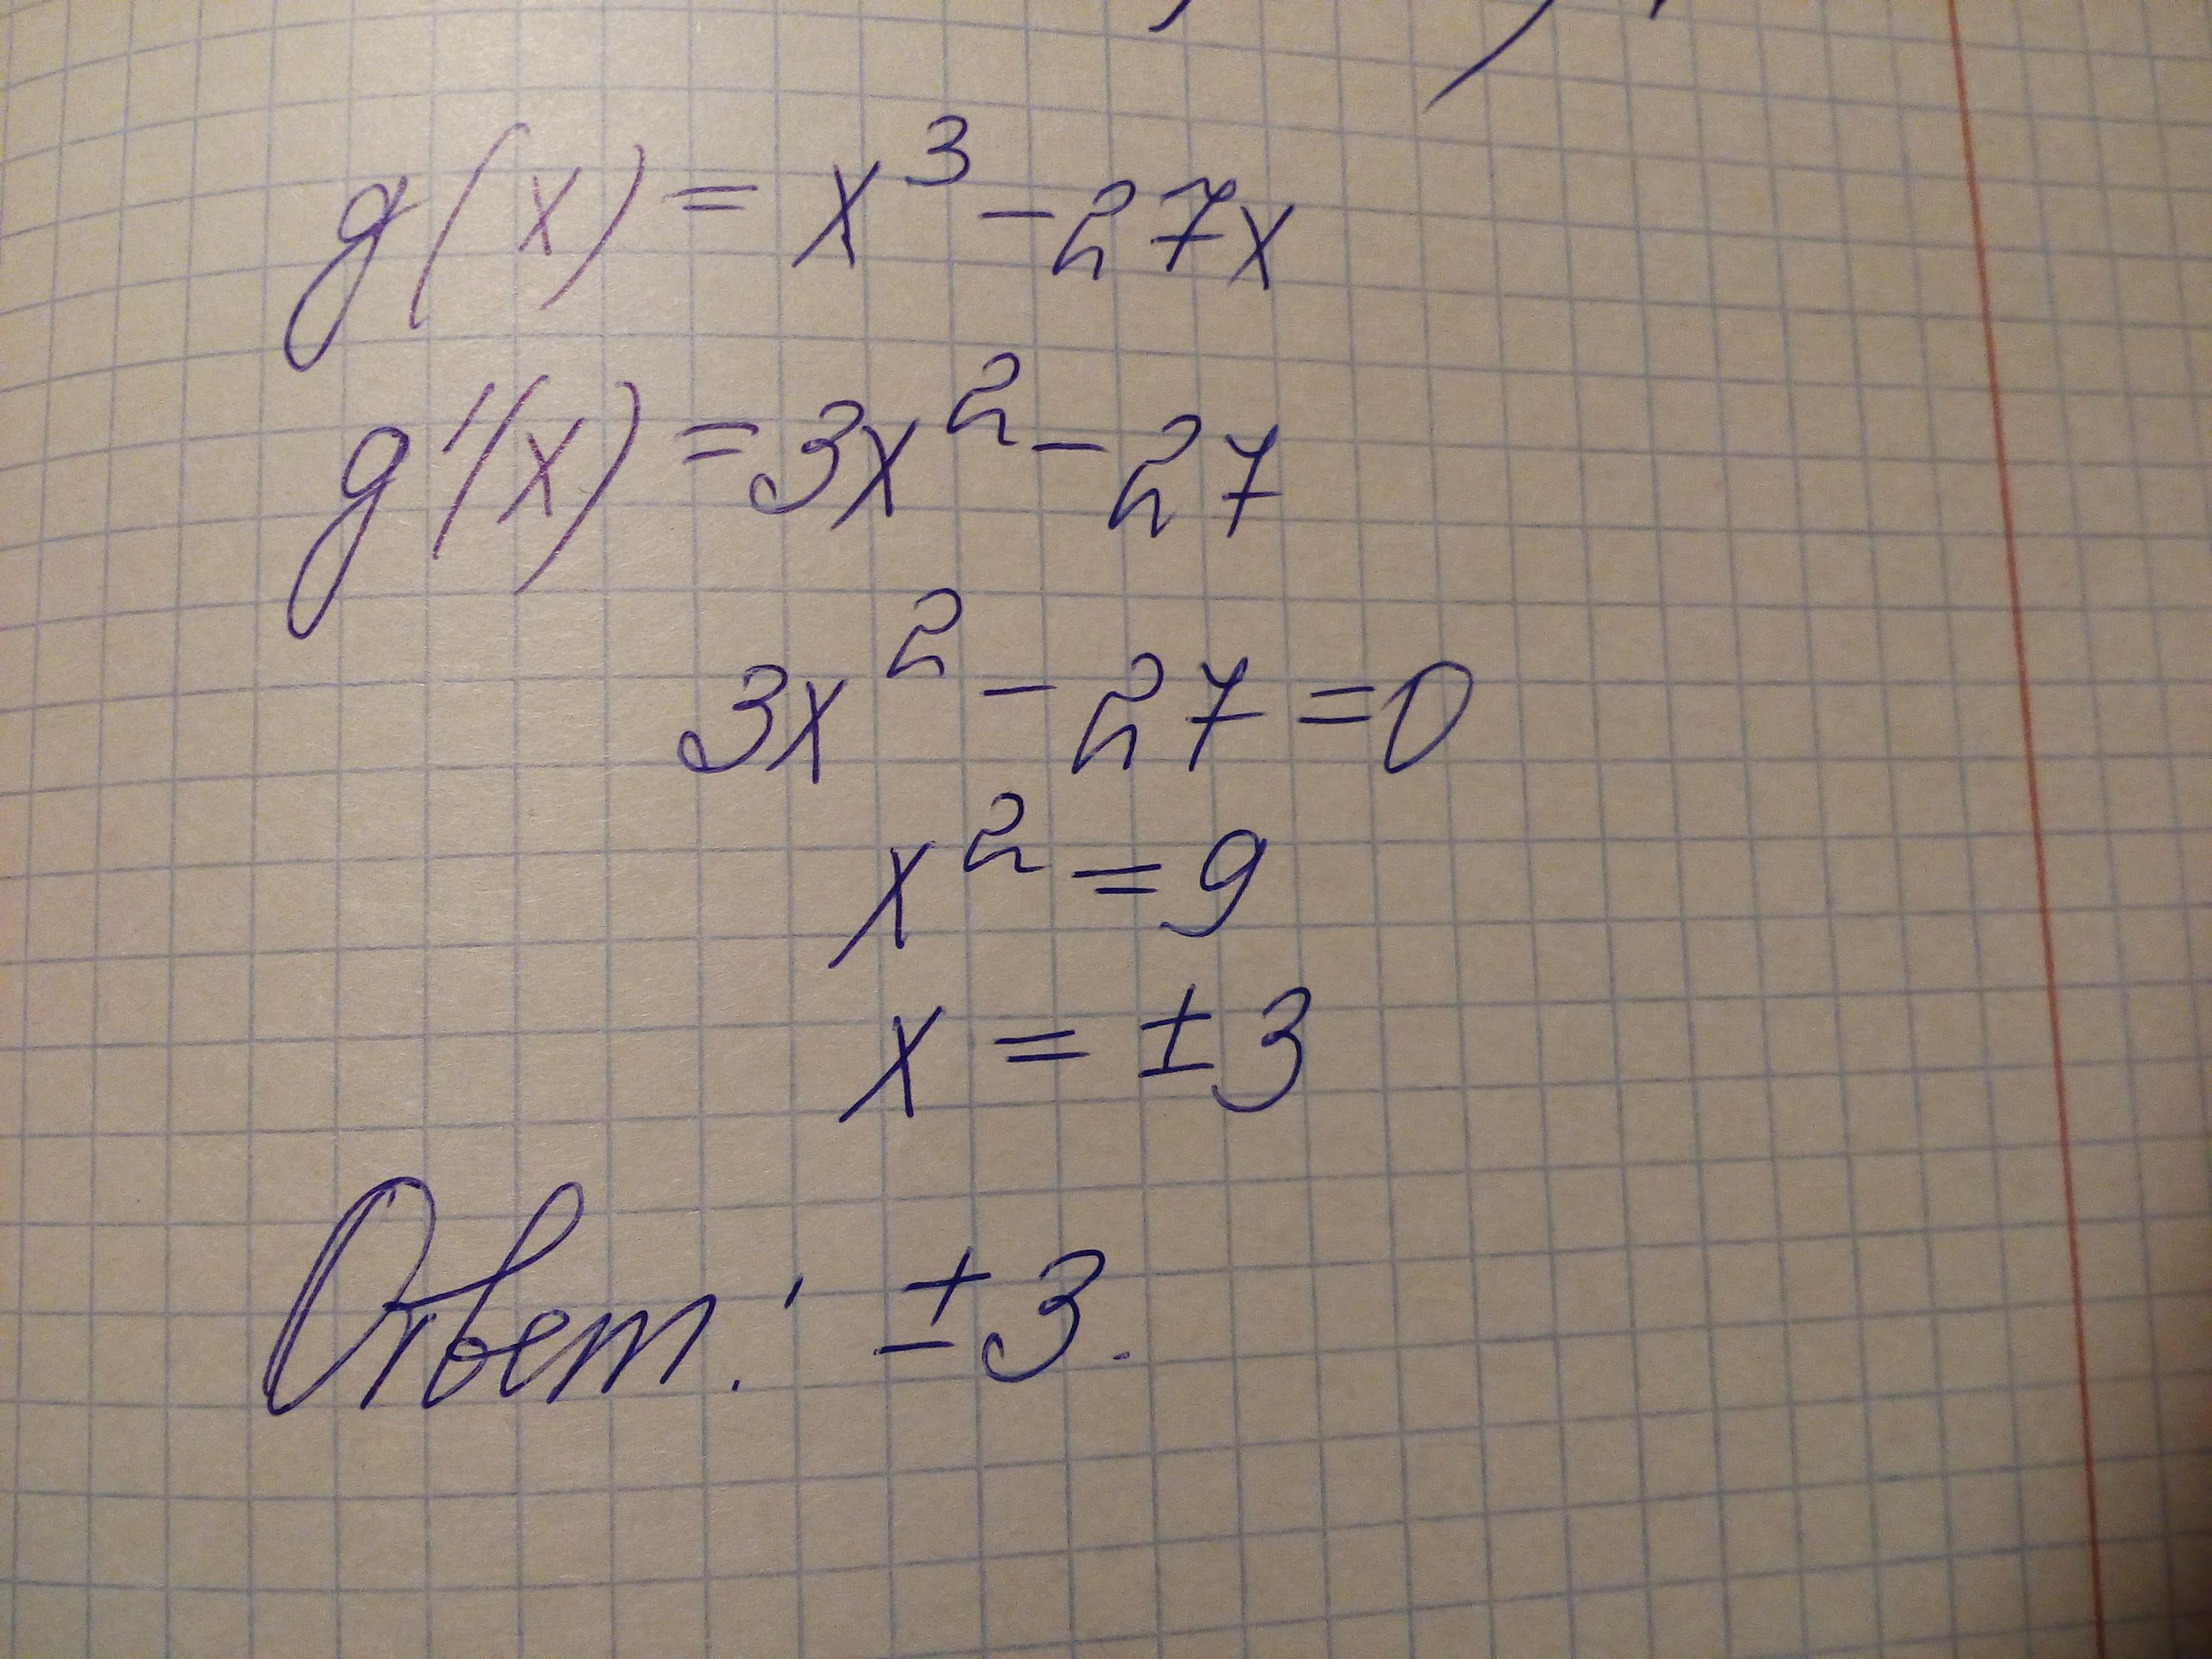 g(x) = x³ - 27x
g'(x) = 3x² - 27
3x² - 27 = 0
x² = 9
x = ±3
Ответ: ±3.